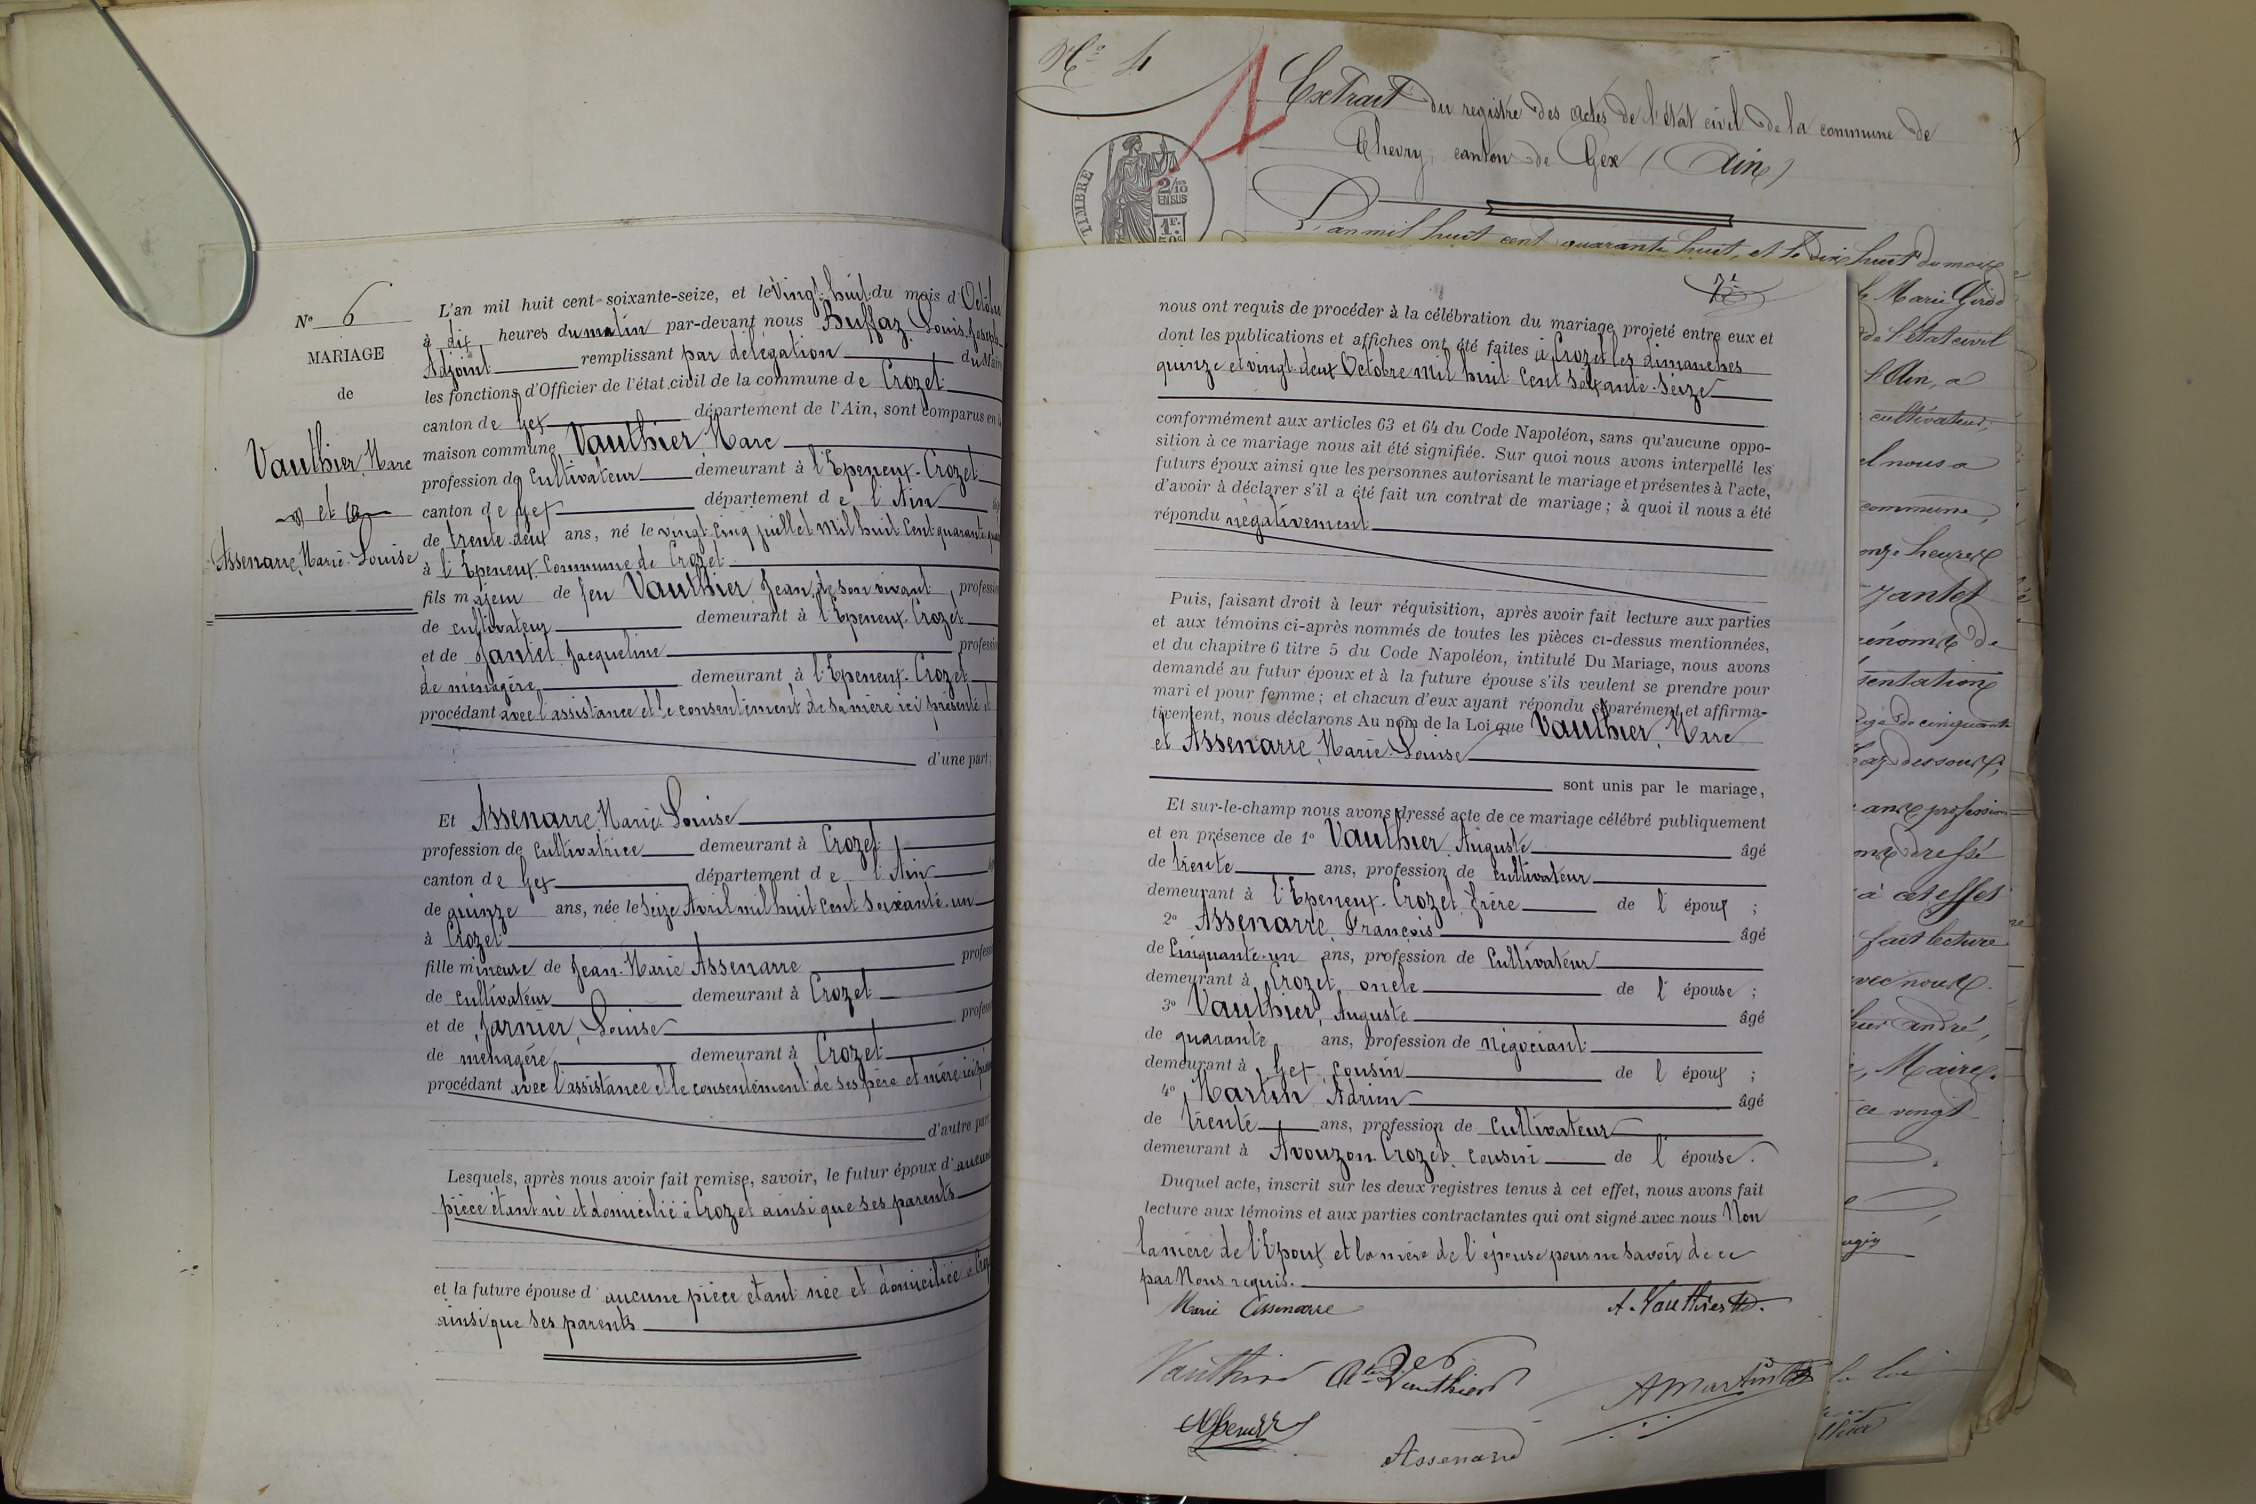 Nº 6
MARIAGE
de
Vauthier, Marc
et
Assenarre, Marie-Louise
L'an mil huit cent soixante-seize, et le Vingt-huit du mois d'Octobre
à dix heures du matin par-devant nous Buffaz, Louis, Joseph
Adjoint remplissant par délégation du Maire
les fonctions d'Officier de l'état civil de la commune de Crozet
canton de Gex département de l'Ain, sont comparus en la
maison commune, Vauthier, Marc
profession de Cultivateur demeurant à l'Epeneux-Crozet
canton de Gex département de l'Ain
de trente-deux ans, né le vingt-cinq juillet mil huit cent quarante
à l'Epeneux Commune de Crozet
fils majeur de feu Vauthier Jean, de son vivant, profession
de cultivateur demeurant à l'Epeneux-Crozet
et de Jantet Jacqueline profession
de ménagère demeurant à l'Epeneux-Crozet
procédant avec l'assistance et le consentement de sa mère ici présente
d'une part;
Et Assenarre, Marie-Louise
profession de Cultivatrice demeurant à Crozet
canton de Gex département de l'Ain
de quinze ans, née le Seize Avril mil huit cent soixante-un
à Crozet
fille mineure de Jean-Marie Assenarre profess
de cultivateur demeurant à Crozet
et de Jarnier, Louise profess
de ménagère demeurant à Crozet
procédant avec l'assistance et le consentement de ses père et mère ici
d'autre part
Lesquels, après nous avoir fait remise, savoir, le futur époux d'aucune
pièce étant né et domicilié à Crozet ainsi que ses parents
et la future épouse d'aucune pièce étant née et domiciliée à Croz
ainsi que ses parents
Nº 4
Extrait du registre des actes de l'état civil de la commune de
Chevry, canton de Gex (Ain)
TIMBRE
2/10
EN SUS
1F.
50c
L'an mil huit cent quarante huit, et le dix huit du mois
7e
nous ont requis de procéder à la célébration du mariage projeté entre eux et
dont les publications et affiches ont été faites à Crozet les dimanches
quinze et vingt-deux Octobre mil huit cent soixante-seize
conformément aux articles 63 et 64 du Code Napoléon, sans qu'aucune oppo-
sition à ce mariage nous ait été signifiée. Sur quoi nous avons interpellé les
futurs époux ainsi que les personnes autorisant le mariage et présentes à l'acte,
d'avoir à déclarer s'il a été fait un contrat de mariage; à quoi il nous a été
répondu négativement
Puis, faisant droit à leur réquisition, après avoir fait lecture aux parties
et aux témoins ci-après nommés de toutes les pièces ci-dessus mentionnées,
et du chapitre 6 titre 5 du Code Napoléon, intitulé Du Mariage, nous avons
demandé au futur époux et à la future épouse s'ils veulent se prendre pour
mari et pour femme; et chacun d'eux ayant répondu séparément et affirma-
tivement, nous déclarons Au nom de la Loi que Vauthier, Marc
et Assenarre, Marie-Louise
sont unis par le mariage,
Et sur-le-champ nous avons dressé acte de ce mariage célébré publiquement
et en présence de 1º Vauthier, Auguste âgé
de trente ans, profession de cultivateur
demeurant à l'Epeneux-Crozet, frère de l'époux;
2º Assenarre, François âgé
de Cinquante-un ans, profession de Cultivateur
demeurant à Crozet, oncle de l'épouse;
3º Vauthier, Auguste âgé
de quarante ans, profession de négociant
demeurant à Gex, cousin de l'époux;
4º Martin Adrien âgé
de trente ans, profession de cultivateur
demeurant à Avouzon-Crozet, cousin de l'épouse.
Duquel acte, inscrit sur les deux registres tenus à cet effet, nous avons fait
lecture aux témoins et aux parties contractantes qui ont signé avec nous Non
la mère de l'Epoux et la mère de l'épouse pour ne savoir de ce
par Nous requis.
Marie Assenarre
A. Vauthier
Vauthier
Vauthier
A Martin
Assenard
Marie Girod
de l'état civil
l'Ain, a
cultivateur,
el nous a
commune,
onze heures
Jantet
sentation
age de cinquante
dessous,
ans profession
dressé
à cet effet
fait lecture
avec nous.
André,
Maire.
ce vingt
la loi